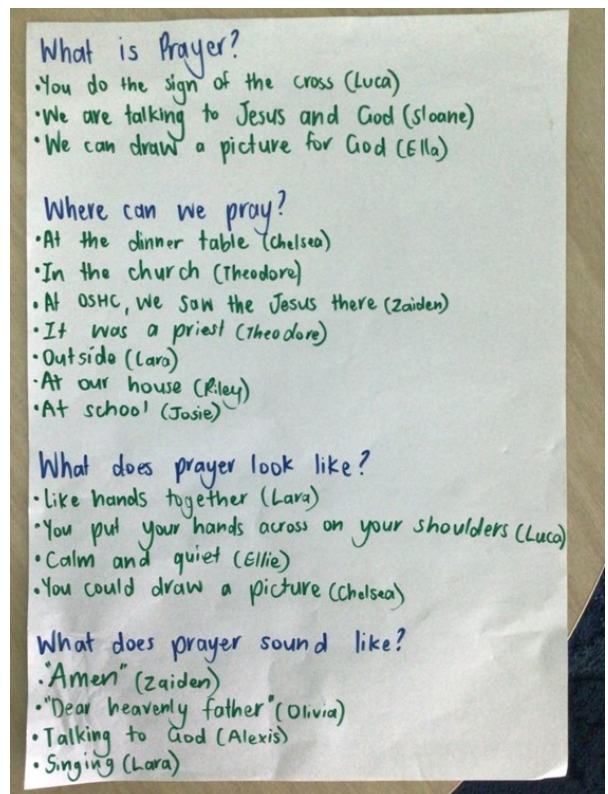 What is Prayer?
•You do the sign of the cross (Luca)
•We are talking to Jesus and God (Sloane)
•We can draw a picture for God (Ella)
Where can we pray?
•At the dinner table (Chelsea)
•In the church (Theodore)
•At OSHC, we saw the Jesus there (Zaiden)
•It was a priest (Theodore)
•Outside (Lara)
•At our house (Riley)
•At school (Josie)
What does prayer look like?
•Like hands together (Lara)
•You put your hands across on your shoulders (Luca)
•Calm and quiet (Ellie)
•You could draw a picture (Chelsea)
What does prayer sound like?
•"Amen" (Zaiden)
•"Dear heavenly father" (Olivia)
•Talking to God (Alexis)
•Singing (Lara)